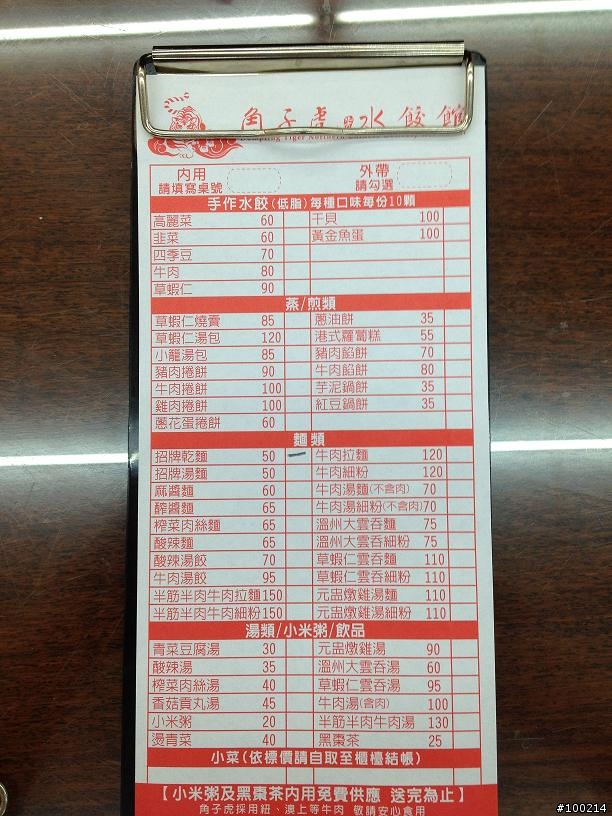 角子虎の水餃館
Dumpling Tiger Northern
內用 請填寫桌號
外帶 請勾選
手作水餃(低脂)每種口味每份10顆
高麗菜 60 干貝 100
韭菜 60 黃金魚蛋 100
四季豆 70
牛肉 80
草蝦仁 90
蒸/煎類
草蝦仁燒賣 85 蔥油餅 35
草蝦仁湯包 120 港式蘿蔔糕 55
小籠湯包 85 豬肉餡餅 70
豬肉捲餅 90 牛肉餡餅 80
牛肉捲餅 100 芋泥鍋餅 35
雞肉捲餅 100 紅豆鍋餅 35
蔥花蛋捲餅 60
麵類
招牌乾麵 50 牛肉拉麵 120
招牌湯麵 50 牛肉細粉 120
麻醬麵 60 牛肉湯麵(不含肉) 70
醡醬麵 65 牛肉湯細粉(不含肉) 70
榨菜肉絲麵 65 溫州大雲吞麵 75
酸辣麵 65 溫州大雲吞細粉 75
酸辣湯餃 70 草蝦仁雲吞麵 110
牛肉湯餃 95 草蝦仁雲吞細粉 110
半筋半肉牛肉拉麵 150 元盅燉雞湯麵 110
半筋半肉牛肉細粉 150 元盅燉雞湯細粉 110
湯類/小米粥/飲品
青菜豆腐湯 30 元盅燉雞湯 90
酸辣湯 35 溫州大雲吞湯 60
榨菜肉絲湯 40 草蝦仁雲吞湯 95
香菇貢丸湯 45 牛肉湯(含肉) 100
小米粥 20 半筋半肉牛肉湯 130
燙青菜 40 黑棗茶 25
小菜(依標價請自取至櫃檯結帳)
【小米粥及黑棗茶內用免費供應 送完為止】
角子虎採用紐、澳上等牛肉 敬請安心食用
#100214